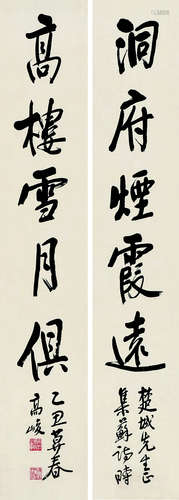 洞府煙霞遠
楚城先生正
集蘇詩時
高樓雪月俱
乙丑莫春
高峻